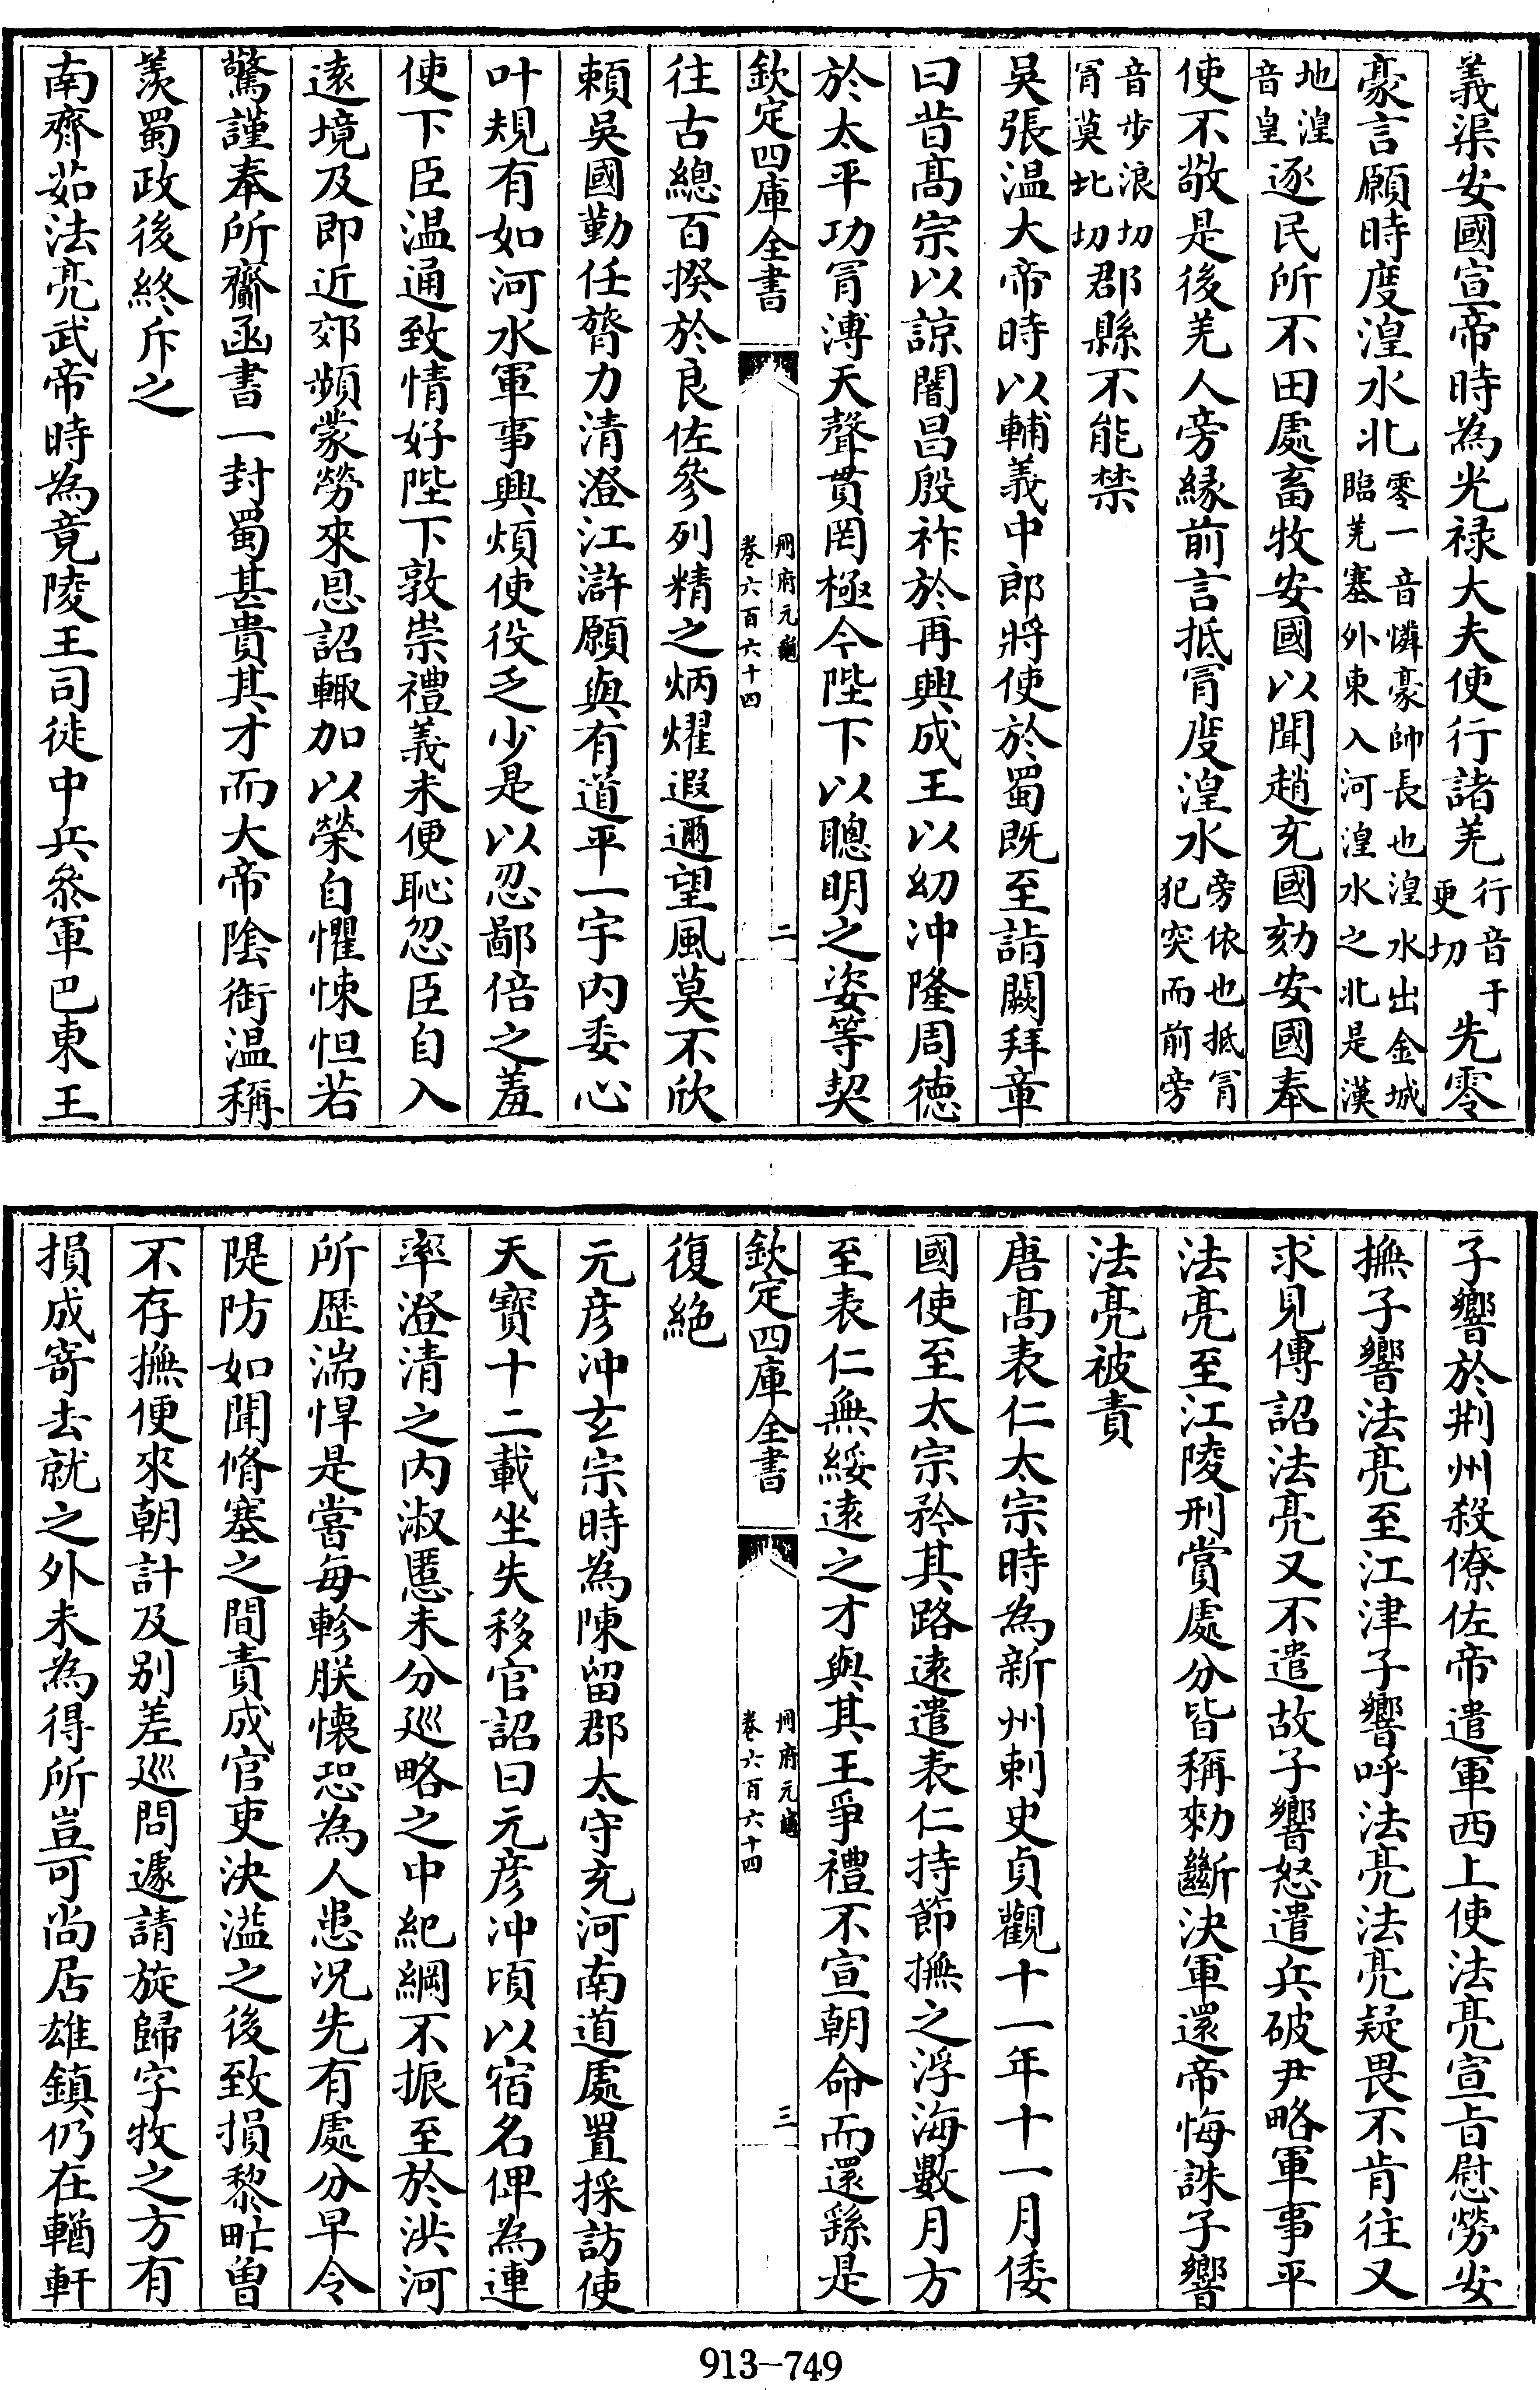 義渠安國宣帝時為光禄大夫使行諸羌行音于更切先零
豪言願時度湟水北零一音憐豪帥長也湟水出金城臨羌塞外東入河湟水之北是漢
地湟音皇逐民所不田處畜牧安國以聞趙充國劾安國奉
使不敬是後羌人旁緣前言抵冐度湟水旁依也抵冐犯突而前旁
音步浪切冐莫北切郡縣不能禁
吳張温大帝時以輔義中郎將使於蜀既至詣闕拜章
曰昔髙宗以諒闇昌殷祚於再興成王以幼冲隆周德
於太平功冐溥天聲貫罔極今陛下以聰明之姿等契
欽定四庫全書
冊府元龜
卷六百六十四
二
往古總百揆於良佐參列精之炳燿遐邇望風莫不欣
頼吳國勤任膂力清澄江滸願與有道平一宇内委心
叶規有如河水軍事興煩使役乏少是以忍鄙倍之羞
使下臣温通致情好陛下敦崇禮義未便恥忽臣自入
逺境及即近郊頻蒙勞來恩詔輙加以榮自懼悚怛若
驚謹奉所齎函書一封蜀甚貴其才而大帝陰銜温稱
羨蜀政後終斥之
南齊茹法亮武帝時為竟陵王司徒中兵叅軍巴東王
子響於荆州殺僚佐帝遣軍西上使法亮宣㫖慰勞安
撫子響法亮至江津子響呼法亮法亮疑畏不肯往又
求見傳詔法亮又不遣故子響怒遣兵破尹略軍事平
法亮至江陵刑賞處分皆稱勑斷決軍還帝悔誅子響
法亮被責
唐髙表仁太宗時為新州刺史貞觀十一年十一月倭
國使至太宗矜其路逺遣表仁持節撫之浮海數月方
至表仁無綏逺之才與其王爭禮不宣朝命而還繇是
欽定四庫全書
冊府元龜
卷六百六十四
三
復絶
元彦冲玄宗時為陳留郡太守充河南道處置採訪使
天寶十二載坐失移官詔曰元彦冲頃以宿名俾為連
率澄清之内淑慝未分廵略之中紀綱不振至於洪河
所歴湍悍是嘗每軫朕懐恐為人患况先有處分早令
隄防如聞脩塞之間責成官吏決溢之後致損黎甿曽
不存撫便來朝計及别差廵問遽請旋歸字牧之方有
損成寄去就之外未為得所豈可尚居雄鎮仍在輶軒
913-749